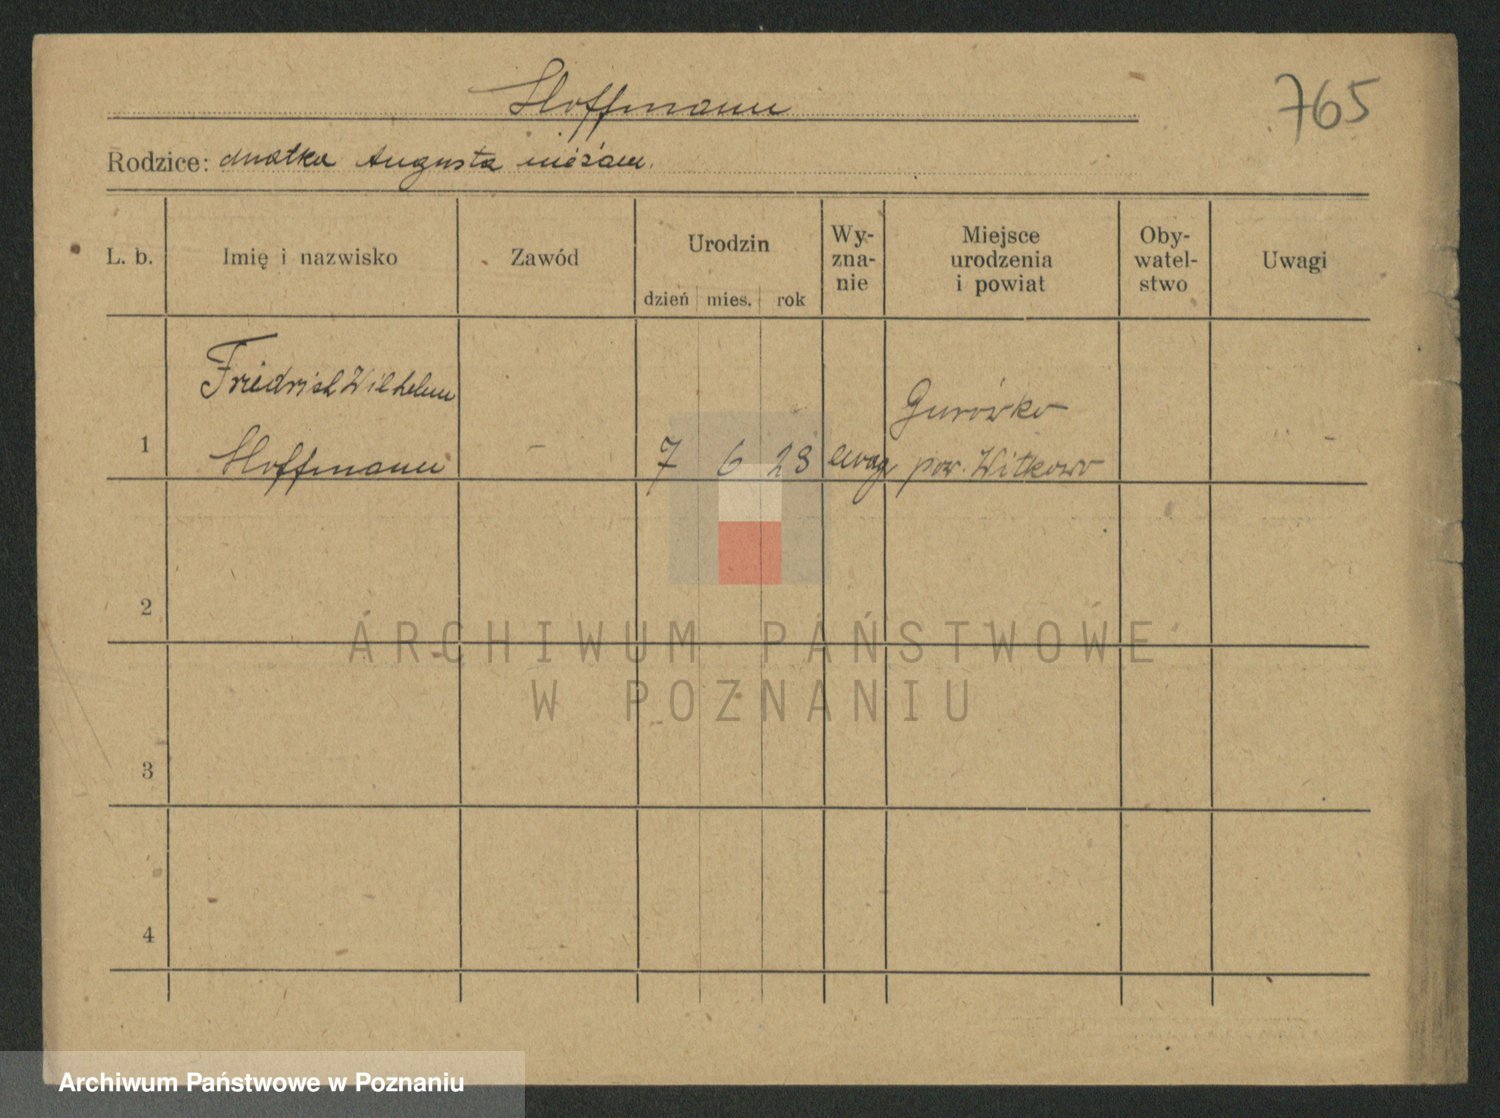 Hoffmann
765
Rodzice: matka Augusta niezam.
L. b. Imię i nazwisko Zawód Urodzin dzień mies. rok Wy-zna-nie Miejsce urodzenia i powiat Oby-watel-stwo Uwagi
Friedrich Wilhelm
Gurówko
1 Hoffmann - 7 6 28 ewag pow. Witkowo -
2
ARCHIWUM PAŃSTWOWE
W POZNANIU
3
4
Archiwum Państwowe w Poznaniu